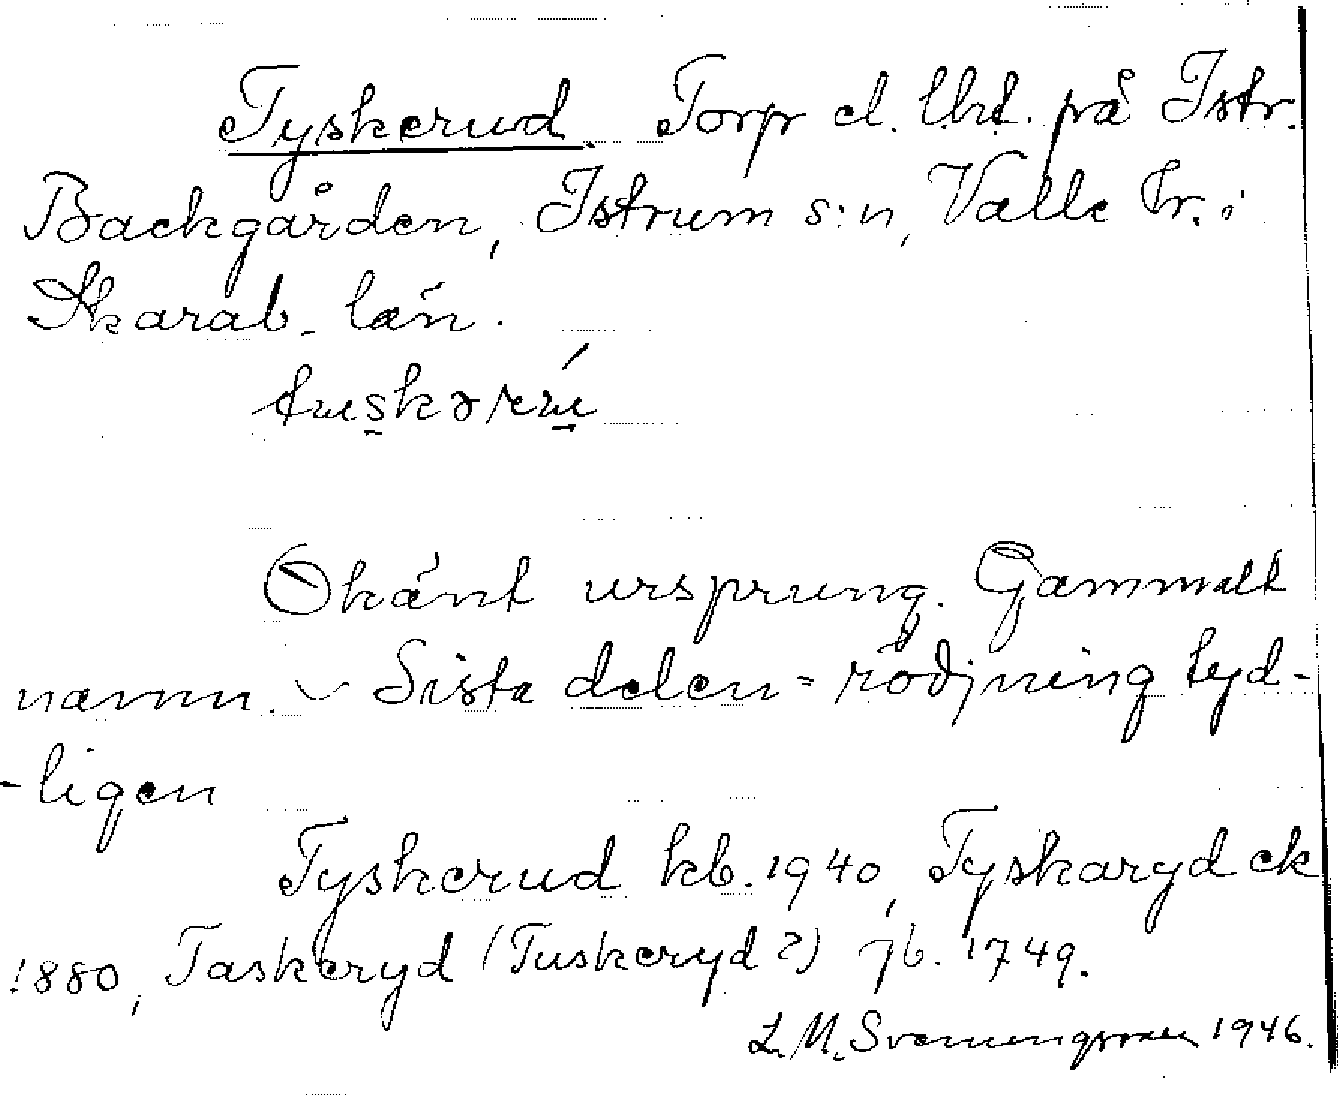 Tyskerud. Torp el. lht. på Istr.
Backgården, Istrum s:n, Valle hr. i
Skarab. län.
Okänt ursprung. Gammalt
namn. – Sista delen = rödjning tyd-
-ligen
Tyskerud kb. 1940, Tyskaryd ek
1880, Taskeryd (Tuskeryd?) jb. 1749.
L. M. Svenungsson 1946.